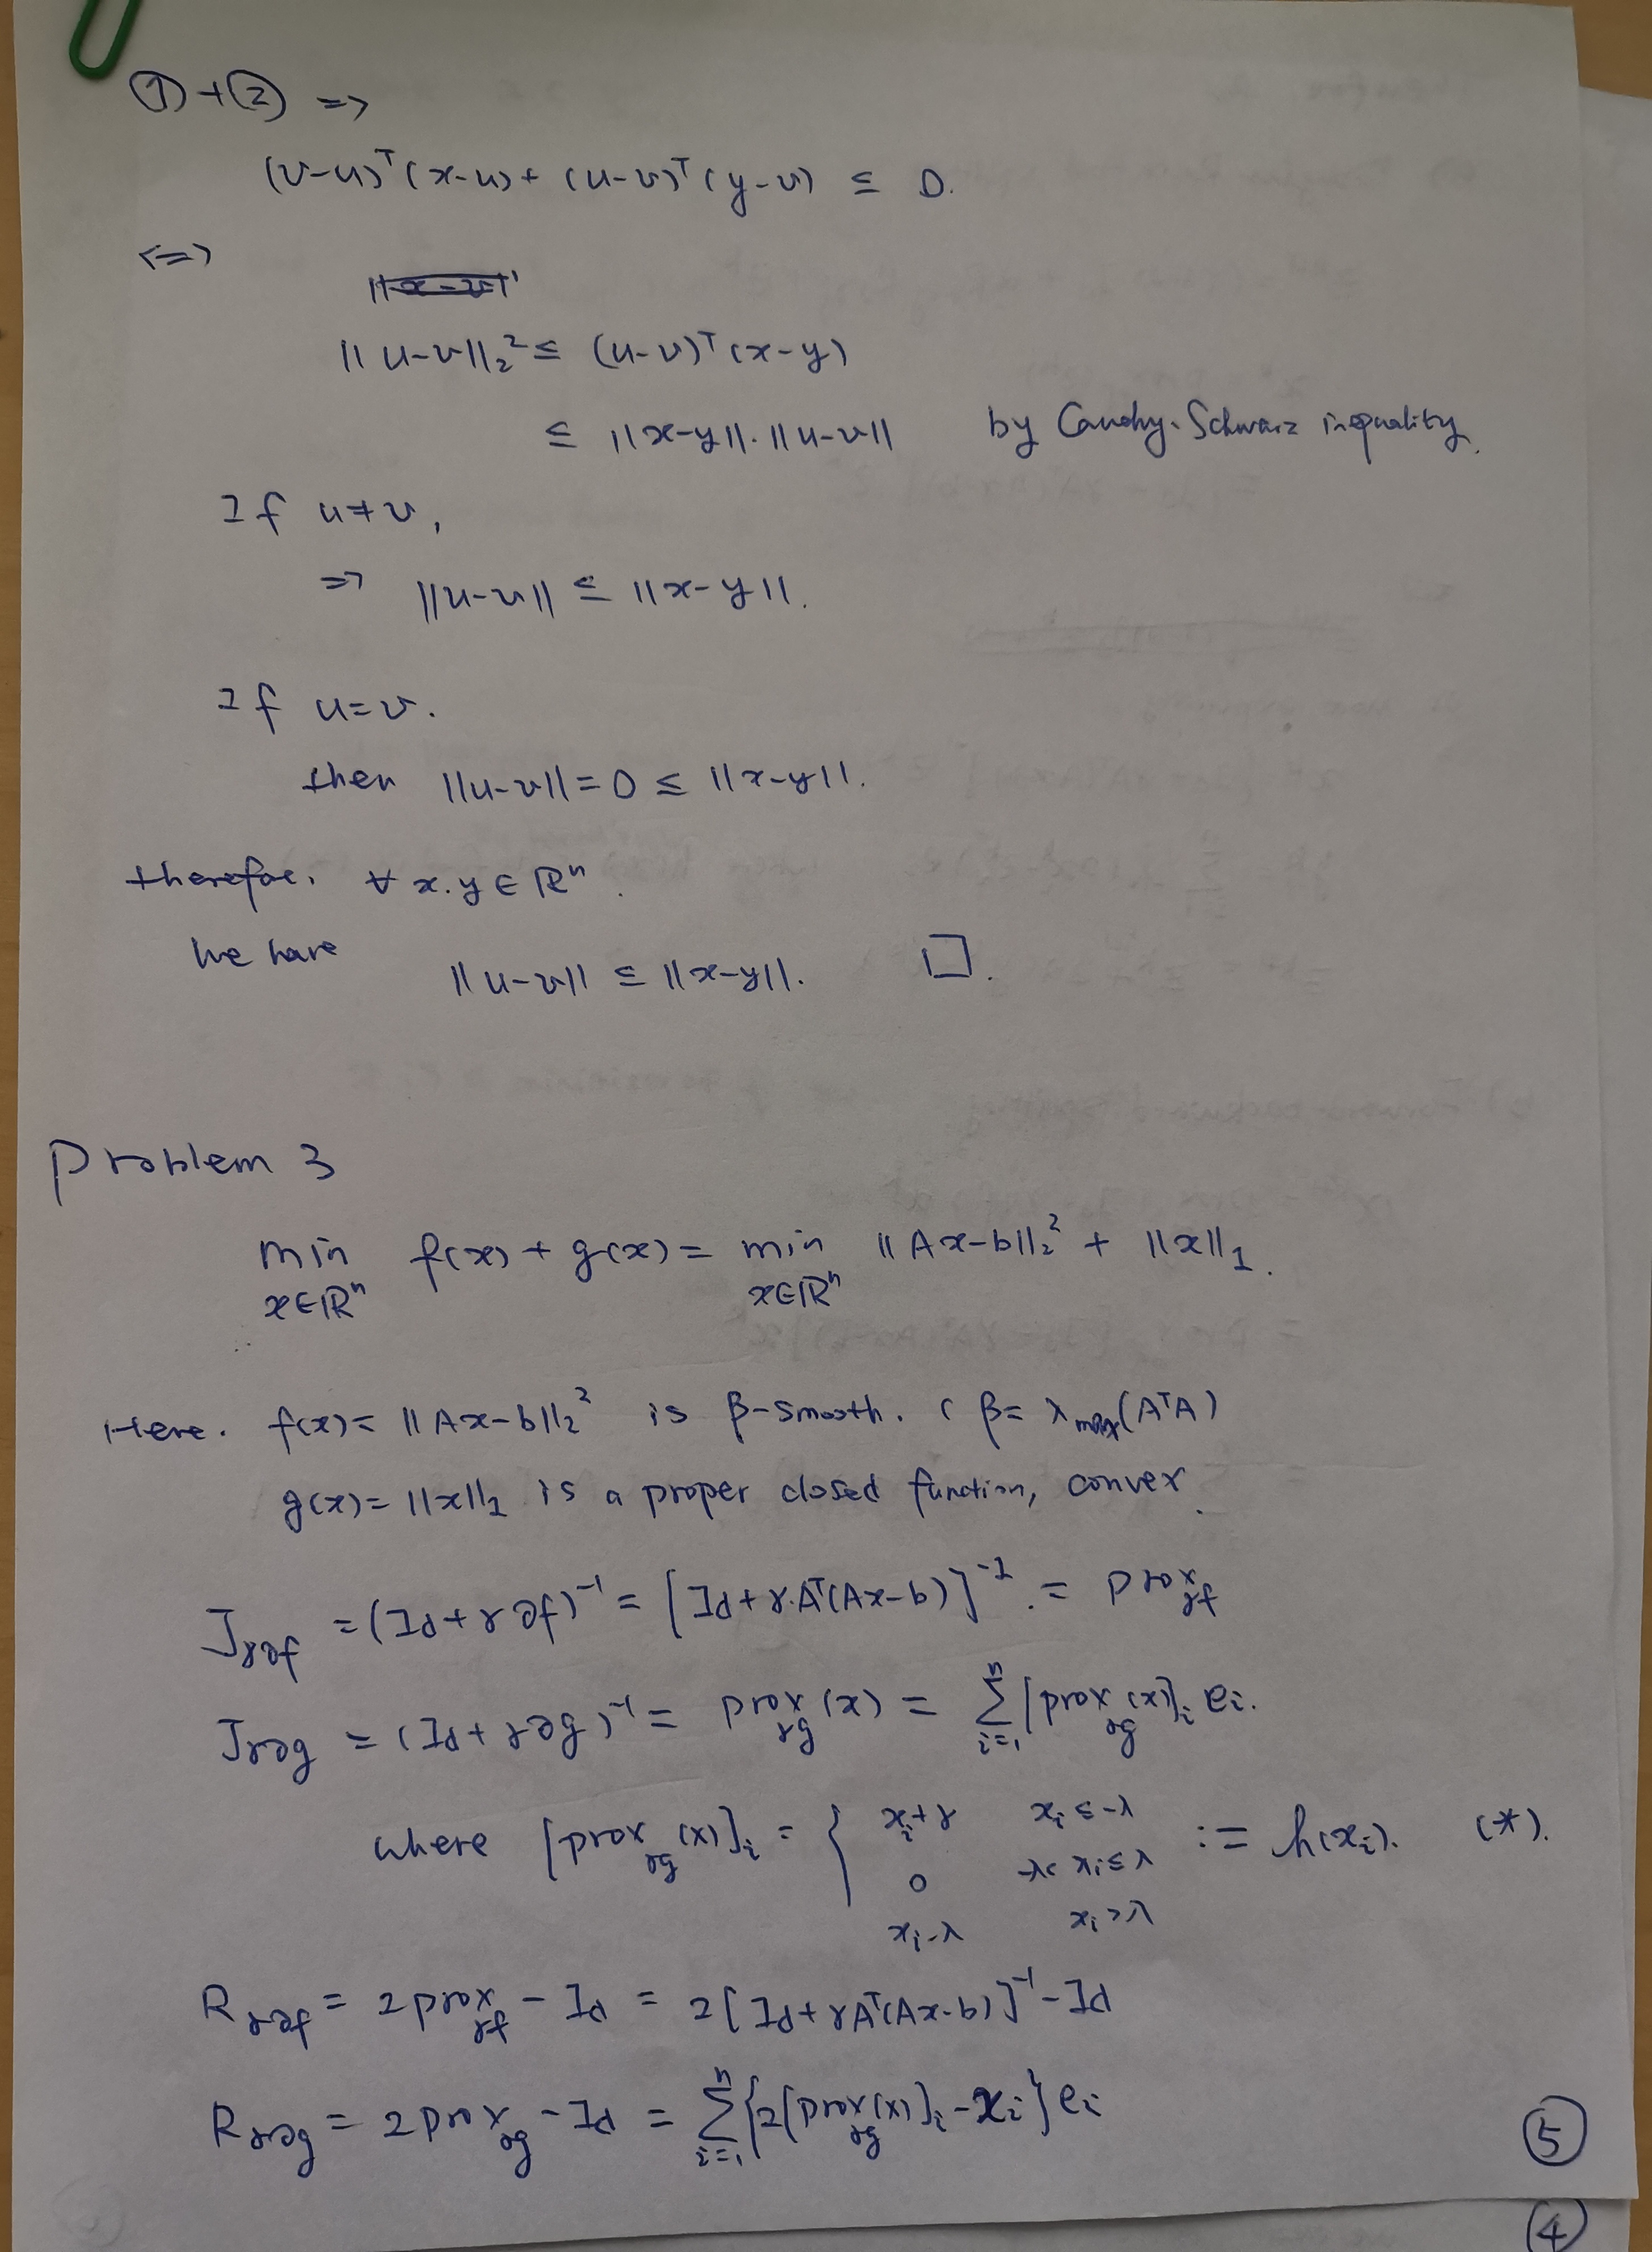 ① + ② =>
(v-u)ᵀ(x-u) + (u-v)ᵀ(y-v) ≤ 0.
<=>
||u-v||₂² ≤ (u-v)ᵀ(x-y)
≤ ||x-y||·||u-v|| by Cauchy-Schwarz inequality.
If u≠v,
=> ||u-v|| ≤ ||x-y||.
If u=v.
then ||u-v||=0 ≤ ||x-y||.
therefoe. ∀ x.y ∈ ℝⁿ.
We have
||u-v|| ≤ ||x-y||. □.
Problem 3
min_{x∈ℝⁿ} f(x) + g(x) = min_{x∈ℝⁿ} ||Ax-b||₂² + ||x||₁.
Here. f(x) = ||Ax-b||₂² is β-smooth. ( β = λmax(AᵀA)
g(x) = ||x||₁ is a proper closed function, convex.
J_{γ∂f} = (Id + γ∂f)⁻¹ = [Id + γ·Aᵀ(Ax-b)]⁻¹. = prox_{γf}
J_{γ∂g} = (Id + γ∂g)⁻¹ = prox_{γg}(x) = Σ_{i=1}^{n} [prox_{γg}(x)]ᵢ eᵢ.
where [prox_{γg}(x)]ᵢ = { xᵢ+γ xᵢ ≤ -λ
0 -λ< xᵢ ≤ λ := h(xᵢ). (*).
xᵢ-λ xᵢ > λ
R_{γ∂f} = 2prox_{γf} - Id = 2[Id + γAᵀ(Ax-b)]⁻¹ - Id
R_{γ∂g} = 2prox_{γg} - Id = Σ_{i=1}^{n} {2[prox_{γg}(x)]ᵢ - xᵢ} eᵢ
⑤
④